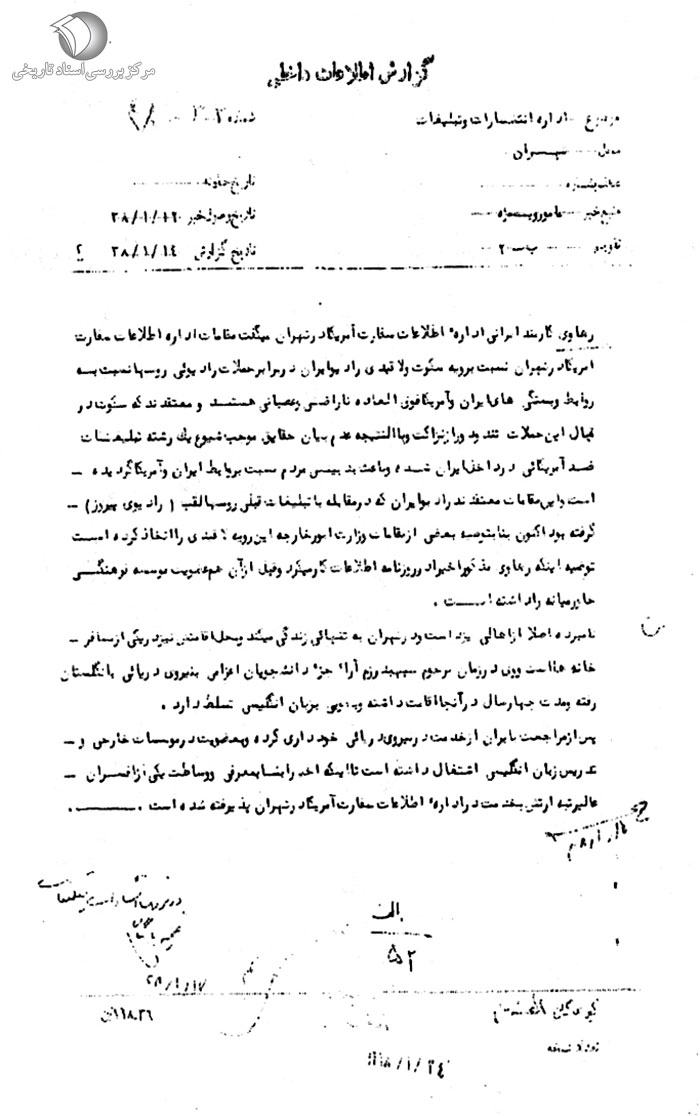 مرکز بررسی اسناد تاریخی
گزارش اطلاعات داخلی
موضوع اداره انتشارات و تبلیغات
شماره
محل تهران
تاریخ حادثه
منبع خبر مامور ویژه
تاریخ وصول خبر
تقویم ب ـ ۲۰
تاریخ گزارش ۳۸/۱/۱۴
رهاوی کارمند ایرانی اداره اطلاعات سفارت آمریکا در تهران میگفت مقامات اداره اطلاعات سفارت
امریکا در تهران نسبت برویه سکوت ولاقیدی رادیو ایران در برابر حملات رادیوئی روسها نسبت به
روابط و بستگی های ایران و آمریکا فوق العاده ناراضی و عصبانی هستند و معتقدند که سکوت در
قبال این حملات تند و دور از نزاکت و بالنتیجه عدم بیان حقایق موجب شیوع یک رشته تبلیغات
ضد آمریکائی در داخل ایران شده و باعث بدبینی مردم نسبت بروابط ایران و آمریکا گردیده -
است و این مقامات معتقدند رادیو ایران که در مقابله با تبلیغات قبلی روسها لقب ( رادیوی پیروز ) -
گرفته بود اکنون بنا بتوصیه بعضی از مقامات وزارت امور خارجه این رویه لاقیدی را اتخاذ کرده است
توضیح اینکه رهاوی مذکور اخیرا در روزنامه اطلاعات کار میکرد و قبل از آن هم عضویت موسسه فرهنگی
خاورمیانه را داشته است .
نامبرده اصلا از اهالی یزد است و در تهران به تنهائی زندگی میکند و محل اقامتش نیز در یکی از مسافر -
خانه هاست ووی در زمان مرحوم سپهبد رزم آرا جزء دانشجویان اعزامی بنیروی دریائی بانگلستان
رفته و مدت چهار سال در آنجا اقامت داشته و بخوبی بزبان انگلیسی تسلط دارد .
پس از مراجعت بایران از خدمت در نیروی دریائی خودداری کرده و بعضویت در موسسات خارجی و -
تدریس زبان انگلیسی اشتغال داشته است تا اینکه اخیرا بنا بمعرفی و وساطت یکی از افسران -
عالیرتبه ارتش بخدمت در اداره اطلاعات سفارت آمریکا در تهران پذیرفته شده است .
بالف
۵۲
۳۸/۱/۱۷
تعداد نسخه